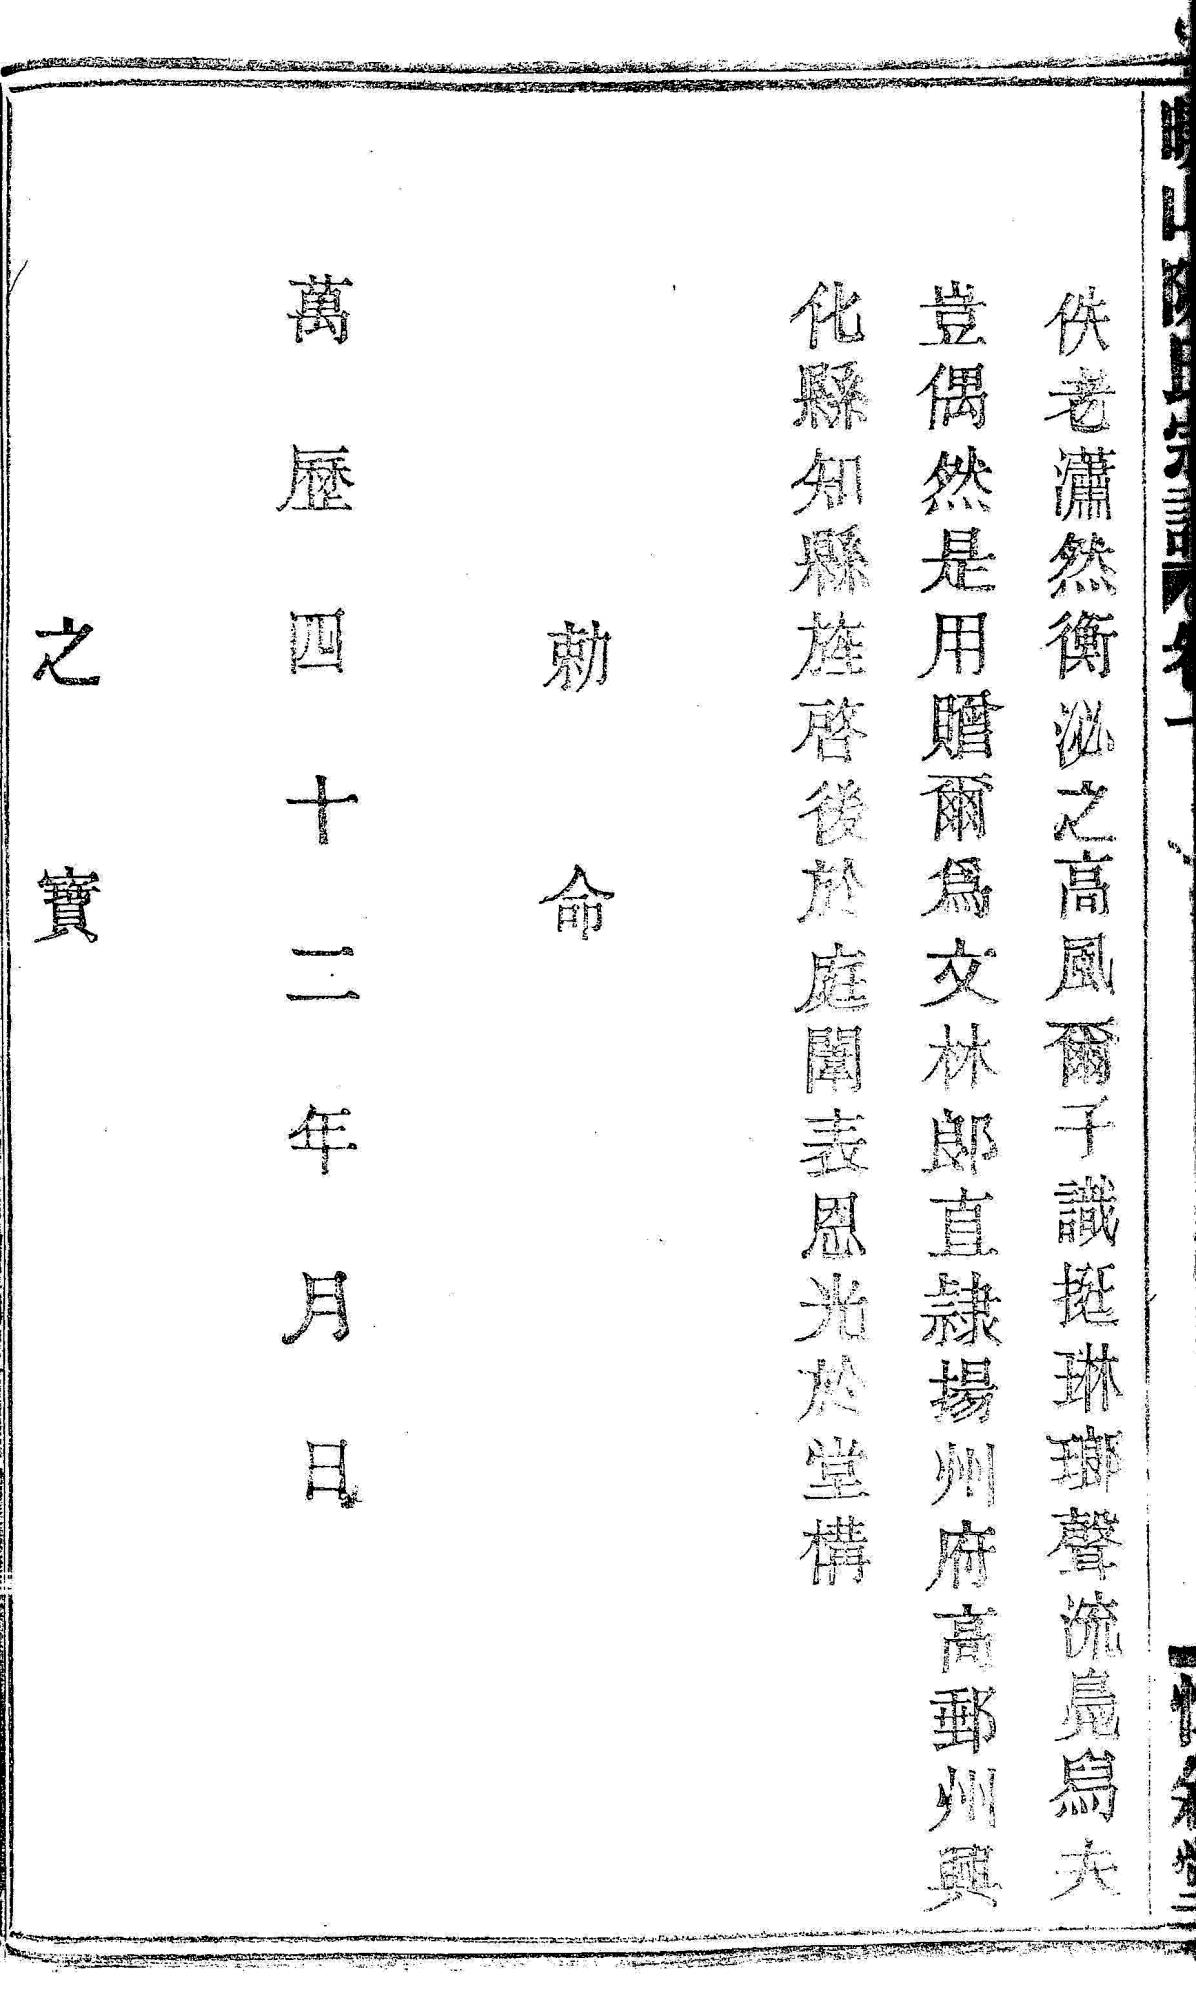 佚老瀟然衡泌之高風爾子識挺琳瑯聲流鳧舄夫
豈偶然是用贈爾爲文林郎直隷揚州府高郵州興
化縣知縣旌啓後於庭闈表恩光於堂構
勅命
萬歷四十二年月日
之寶